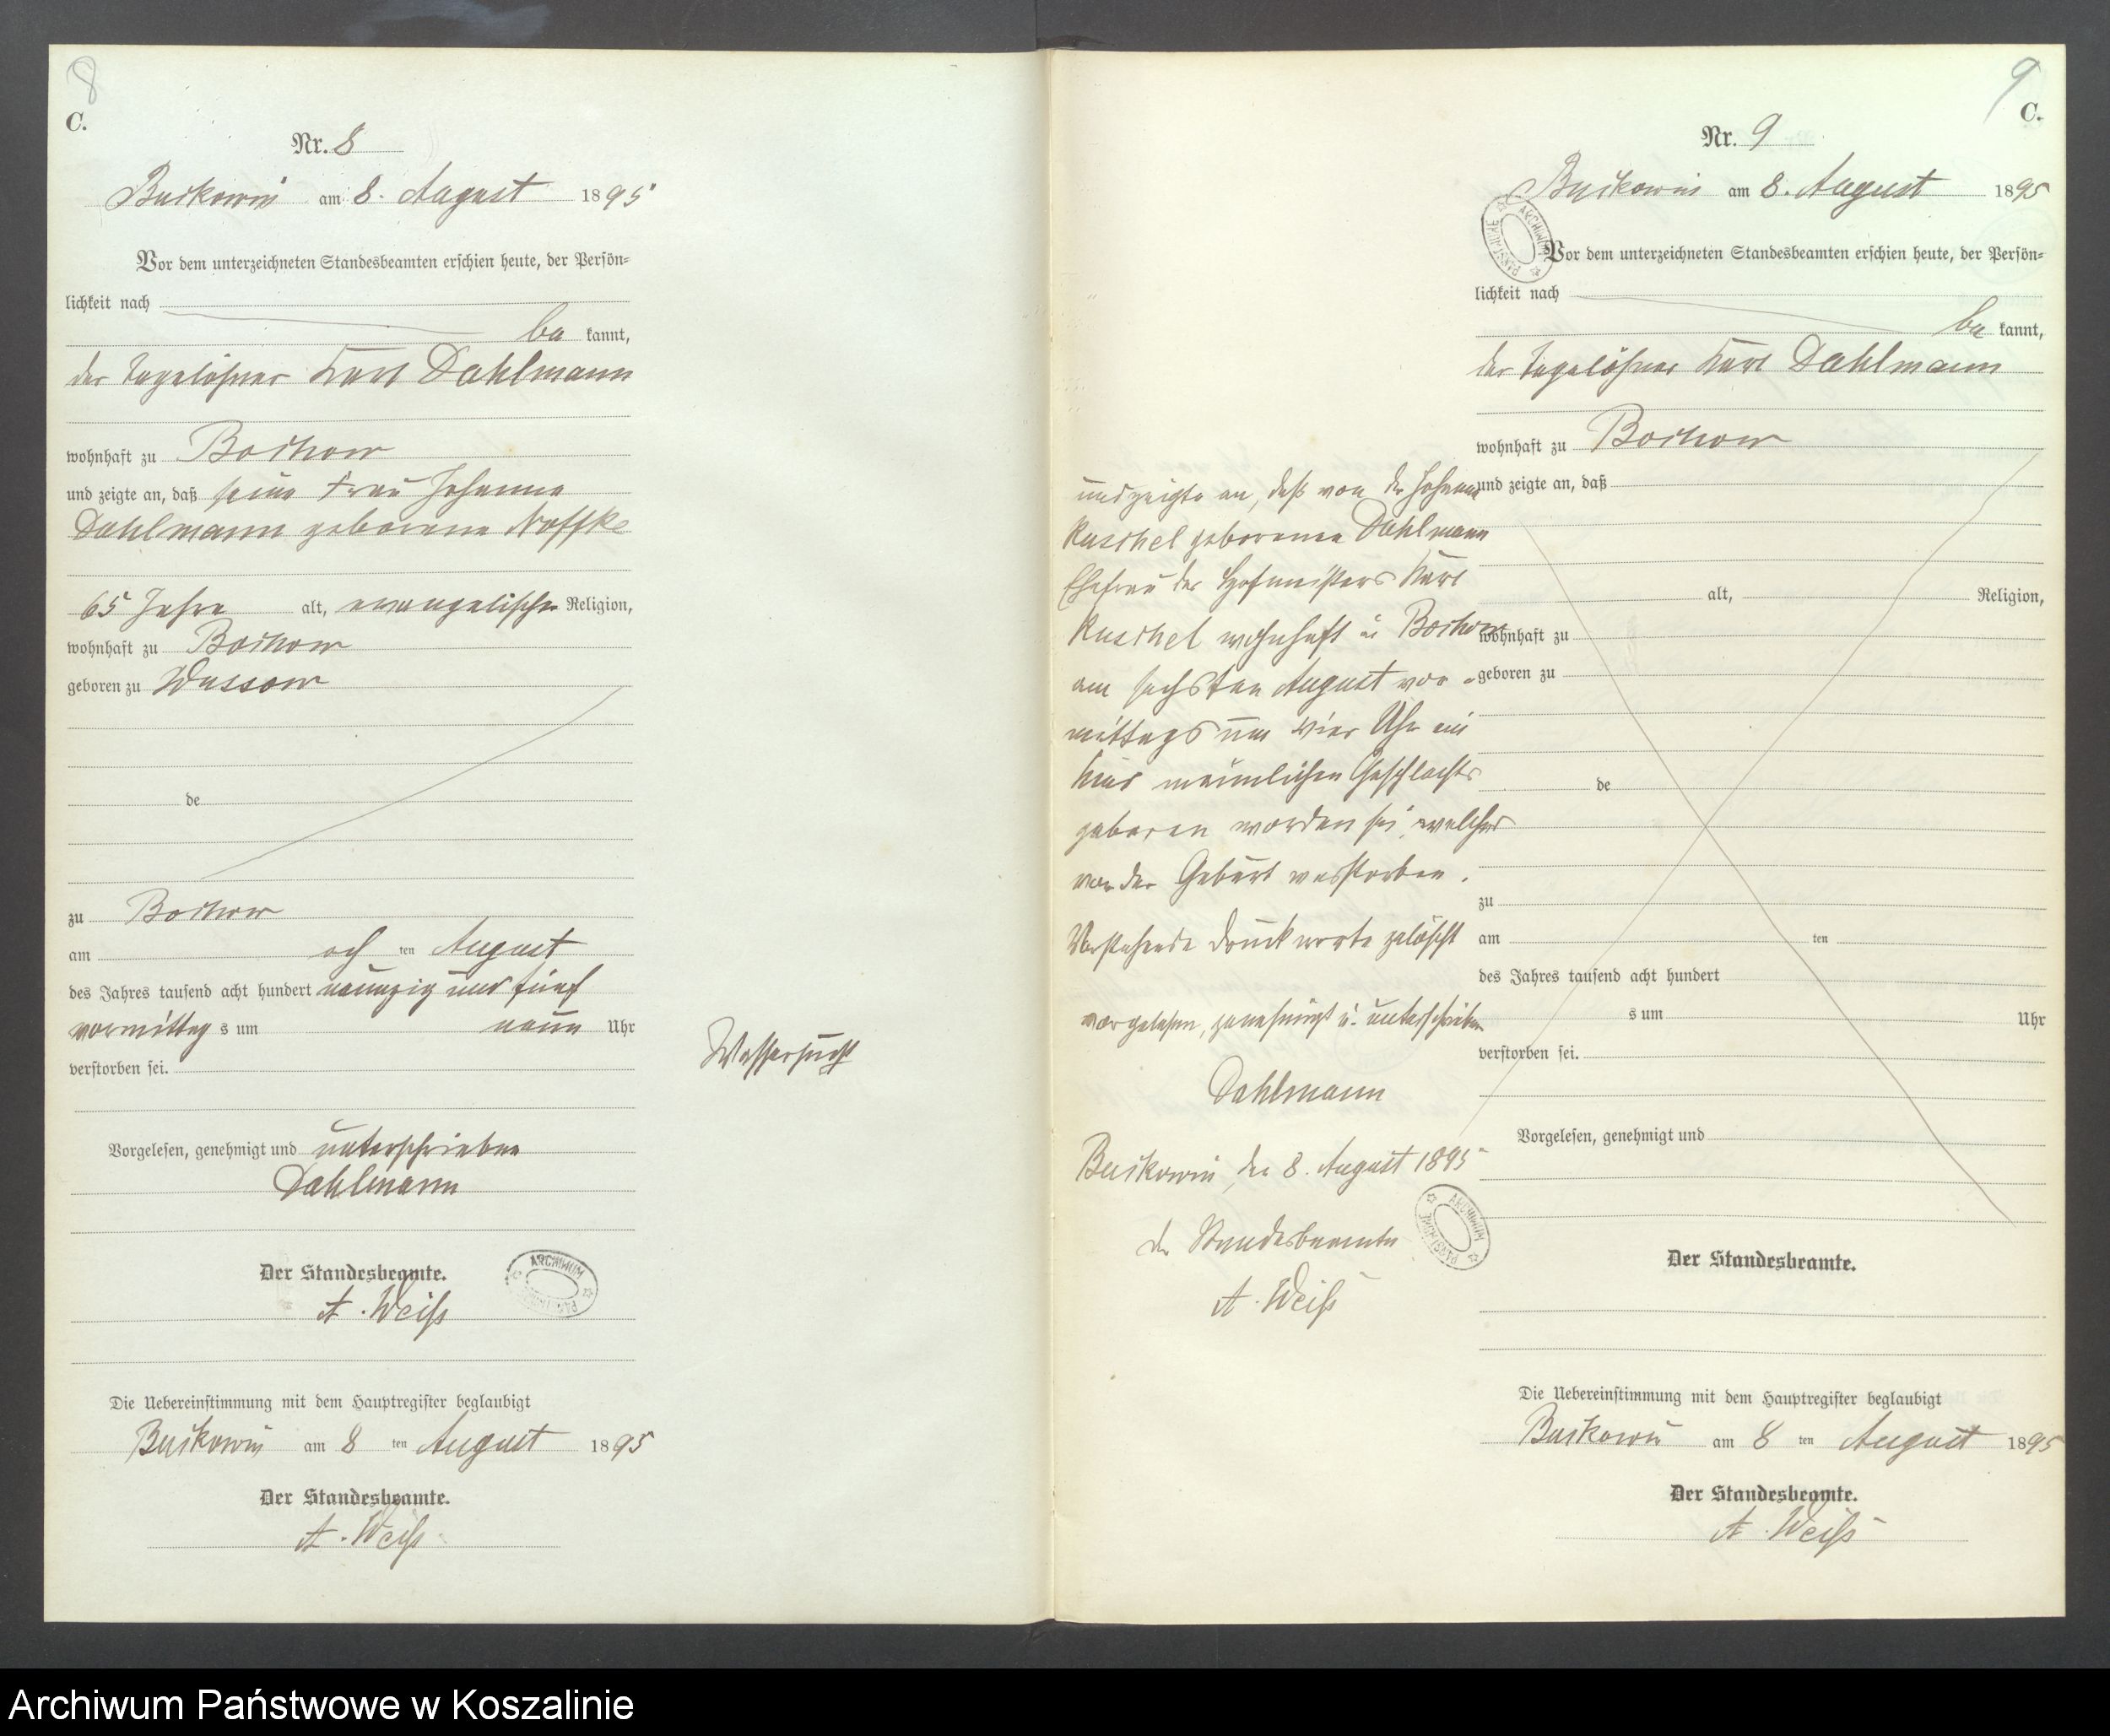 8
C.
Nr. 8
Buckowin am 8. August 1895
Vor dem unterzeichneten Standesbeamten erschien heute, der Persön-
lichkeit nach
be kannt,
der Tagelöhner Karl Dahlmann
wohnhaft zu Bochow
und zeigte an, daß seine Frau Johanne
Dahlmann geborene Noffke
65 Jahre alt, evangelischer Religion,
wohnhaft zu Bochow
geboren zu Wussow
de
zu Bochow
am ach ten August
des Jahres tausend acht hundert neunzig und fünf
vormittag s um neun Uhr
verstorben sei.
Wassersucht
Vorgelesen, genehmigt und unterschrieben
Dahlmann
Der Standesbeamte.
A. Weiß
ARCHIWUM
Die Uebereinstimmung mit dem Hauptregister beglaubigt
Buckowin am 8 ten August 1895
Der Standesbeamte.
A. Weiß
9
C.
Nr. 9
Buckowin am 8. August 1895
Vor dem unterzeichneten Standesbeamten erschien heute, der Persön-
lichkeit nach
be kannt,
der Tagelöhner Karl Dahlmann
wohnhaft zu Bochow
und zeigte an, daß
alt, Religion,
wohnhaft zu
geboren zu
de
zu
am ten
des Jahres tausend acht hundert
s um Uhr
verstorben sei.
Vorgelesen, genehmigt und
und zeigte an, daß von der Johanne
Kuschel geborenen Dahlmann
Ehefrau des Hofmeisters Karl
Kuschel wohnhaft in Bochow
am sechsten August vor-
mittags um vier Uhr ein
Kind männlichen Geschlechts
geboren worden sei, welches
vor der Geburt verstorben.
Vorstehende Druckworte gelöscht
vorgelesen, genehmigt u. unterschrieben
Dahlmann
Buckowin, den 8. August 1895
der Standesbeamte
A. Weiß
Der Standesbeamte.
Die Uebereinstimmung mit dem Hauptregister beglaubigt
Buckowin am 8 ten August 1895
Der Standesbeamte.
A. Weiß
Archiwum Państwowe w Koszalinie